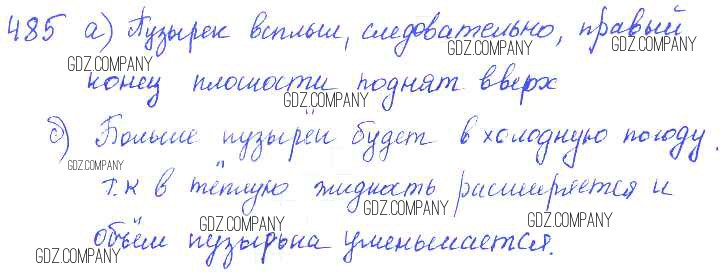 485 а) Пузырек всплыл, следовательно, правый
GDZ.COMPANY GDZ.COMPANY GDZ.COMPANY
конец плоскости поднят вверх
GDZ.COMPANY
б) Больше пузырёк будет в холодную погоду.
GDZ.COMPANY
т.к в тёплую жидкость расширяется и
GDZ.COMPANY GDZ.COMPANY
объём пузырька уменьшается.
GDZ.COMPANY GDZ.COMPANY